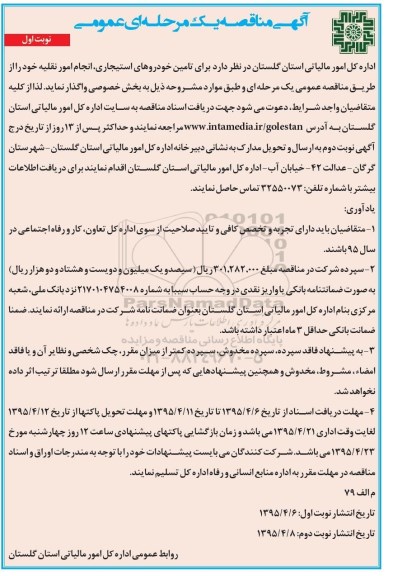 آگهی مناقصه یک مرحله‌ای عمومی
نوبت اول
اداره کل امور مالیاتی استان گلستان در نظر دارد برای تامین خودروهای استیجاری، انجام امور نقلیه خود را از
طریق مناقصه عمومی یک مرحله ای و طبق موارد مشروحه ذیل به بخش خصوصی واگذار نماید. لذا از کلیه
متقاضیان واجد شرایط، دعوت می شود جهت دریافت اسناد مناقصه به سایت اداره کل امور مالیاتی استان
گلستان به آدرس www.intamedia.ir/golestan مراجعه نمایند و حداکثر پس از ۱۳ روز از تاریخ درج
آگهی نوبت دوم به ارسال و تحویل مدارک به نشانی دبیرخانه اداره کل امور مالیاتی استان گلستان - شهرستان
گرگان - عدالت ۴۲ - خیابان آب - اداره کل امور مالیاتی استان گلستان اقدام نمایند برای دریافت اطلاعات
بیشتر با شماره تلفن: ۳۲۵۵۰۰۷۳ تماس حاصل نمایند.
یادآوری:
۱- متقاضیان باید دارای تجربه و تخصص کافی و تایید صلاحیت از سوی اداره کل تعاون، کار و رفاه اجتماعی در
سال ۹۵ باشند.
۲- سپرده شرکت در مناقصه مبلغ ۳۰۱,۲۸۲,۰۰۰ ریال (سیصد و یک میلیون و دویست و هشتاد و دو هزار ریال)
به صورت ضمانتنامه بانکی یا واریز نقدی در وجه حساب سیبا به شماره ۲۱۷۰۱۰۴۷۵۴۰۰۸ نزد بانک ملی، شعبه
مرکزی بنام اداره کل امور مالیاتی استان گلستان بعنوان ضمانت نامه شرکت در مناقصه ارائه نمایند. ضمنا
ضمانت بانکی حداقل ۳ ماه اعتبار داشته باشد.
۳- به پیشنهاد فاقد سپرده، سپرده مخدوش، سپرده کمتر از میزان مقرر، چک شخصی و نظایر آن و یا فاقد
امضاء، مشروط، مخدوش و همچنین پیشنهادهایی که پس از مهلت مقرر ارسال شود مطلقا ترتیب اثر داده
نخواهد شد.
۴- مهلت دریافت اسناد از تاریخ ۱۳۹۵/۴/۶ تا تاریخ ۱۳۹۵/۴/۱۱ و مهلت تحویل پاکتها از تاریخ ۱۳۹۵/۴/۱۲
لغایت وقت اداری ۱۳۹۵/۴/۲۱ می باشد و زمان بازگشایی پاکتهای پیشنهادی ساعت ۱۲ روز چهارشنبه مورخ
۱۳۹۵/۴/۲۳ می باشد. شرکت کنندگان می بایست پیشنهادات خود را با توجه به مندرجات اوراق و اسناد
مناقصه در مهلت مقرر به اداره منابع انسانی و رفاه اداره کل تسلیم نمایند.
م الف ۷۹
تاریخ انتشار نوبت اول: ۱۳۹۵/۴/۶
تاریخ انتشار نوبت دوم: ۱۳۹۵/۴/۸
روابط عمومی اداره کل امور مالیاتی استان گلستان